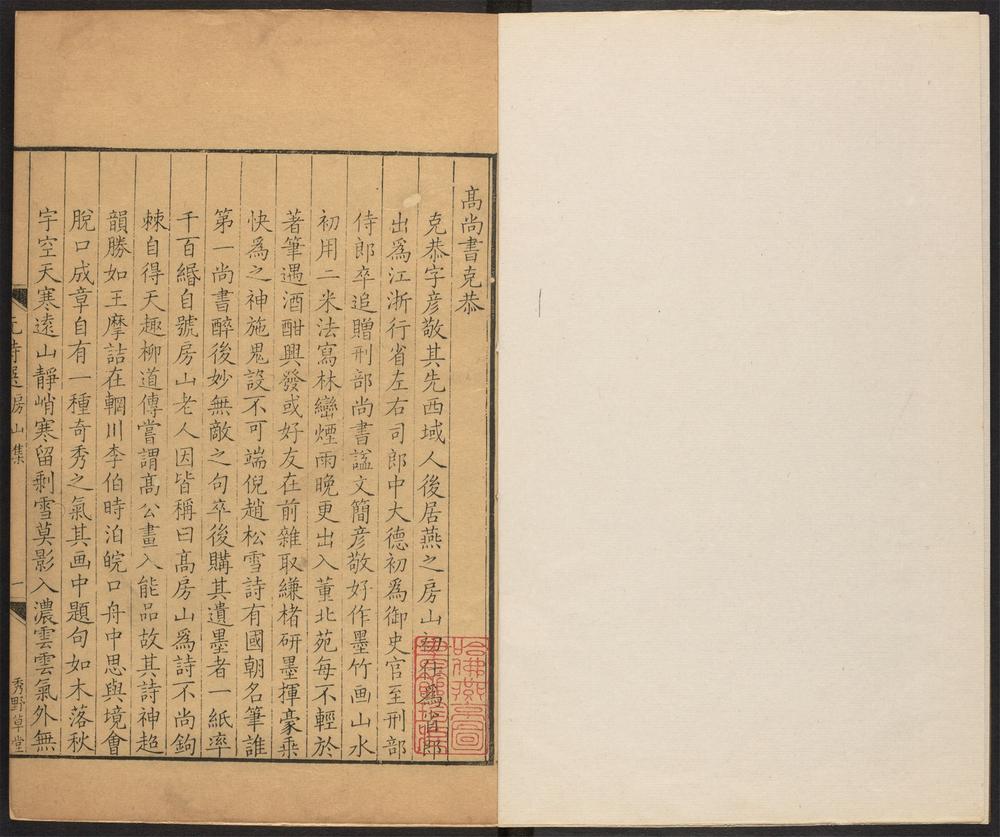 髙尚書克恭
克恭字彦敬其先西域人後居燕之房山初仕為省郎
出爲江浙行省左右司郎中大德初爲御史官至刑部
侍郎卒追贈刑部尚書諡文簡彦敬好作墨竹画山水
初用二米法寫林巒煙雨晚更出入董北苑每不輕於
著筆遇酒酣興發或好友在前雜取縑楮研墨揮豪乗
快爲之神施鬼設不可端倪趙松雪詩有國朝名筆誰
第一尚書醉後妙無敵之句卒後購其遺墨者一紙率
千百緡自號房山老人因皆稱曰髙房山爲詩不尚鉤
棘自得天趣柳道傳嘗謂髙公畫入能品故其詩神超
韻勝如王摩詰在輞川李伯時泊皖口舟中思與境會
脫口成章自有一種奇秀之氣其画中題句如木落秋
字空天寒遠山靜峭寒留剩雪莫影入濃雲雲氣外無
元詩選房山集
一
秀野草堂
哈佛燕
圖